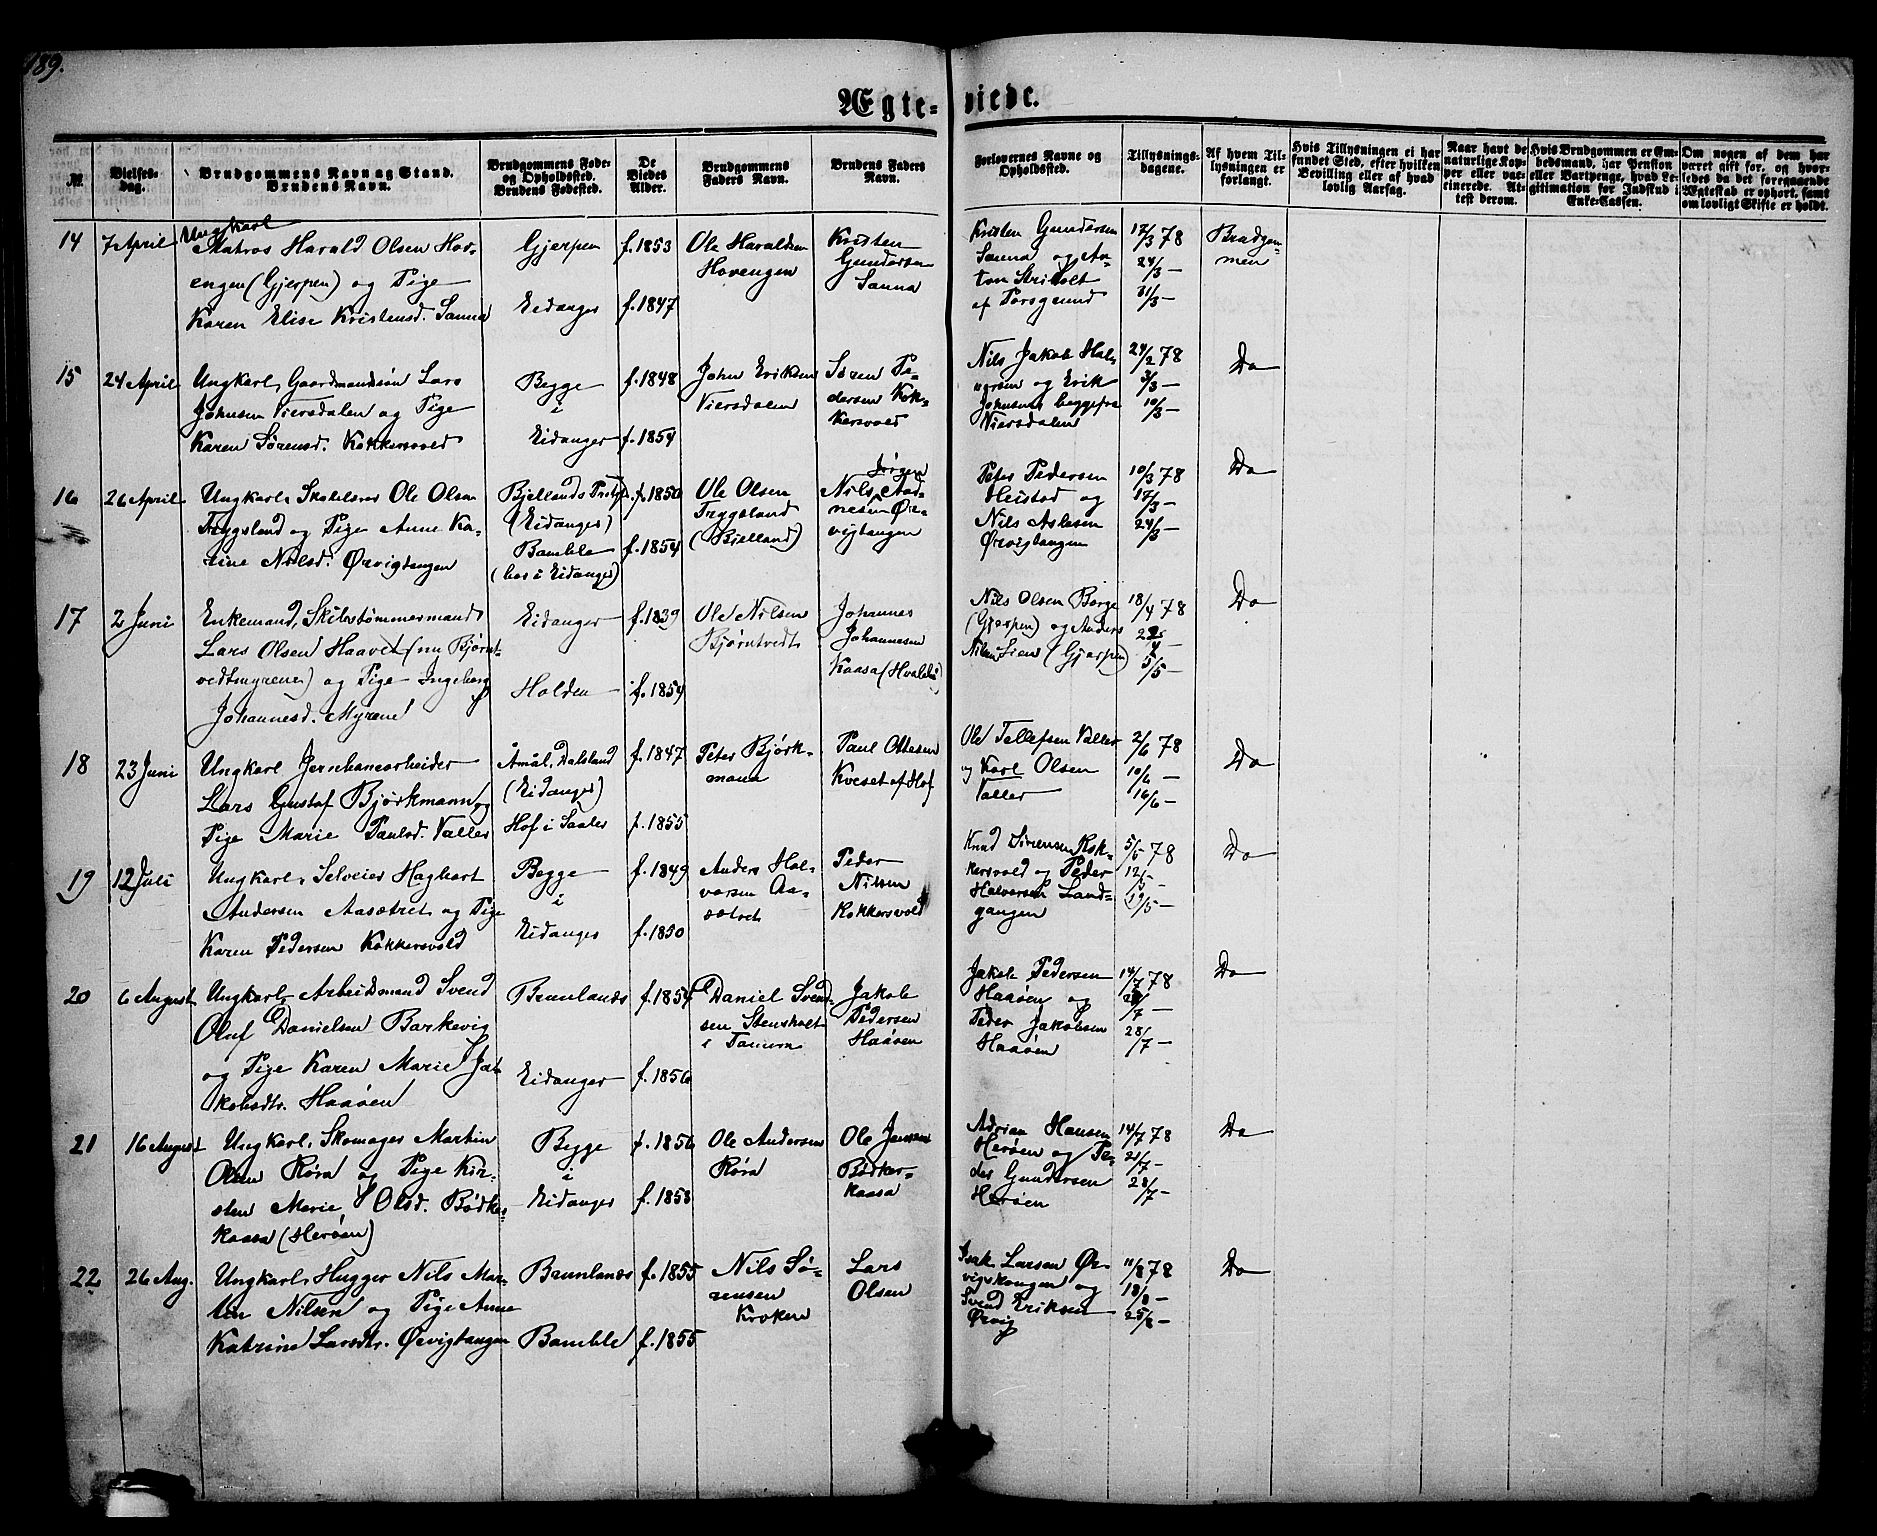 189.
Ægte-viede.
№
Vielses-
dag.
Brudgommens Navn og Stand.
Brudens Navn.
Brudgommens Føde-
og Opholdssted.
Brudens Fødested.
De
Viedes
Alder.
Brudgommens
Faders Navn.
Brudens Faders
Navn.
Forlovernes Navne og
Opholdssted.
Tillysnings-
dagene.
Af hvem Til-
lysningen er
forlangt.
Hvis Tillysningen ei har
fundet Sted, efter hvilken
Bevilling eller af hvad
lovlig Aarsag.
Naar havt de
naturlige Kop-
per eller vac-
cinerede. At-
test derom.
Hvis Brudgommen er Em-
bedsmand, har Pension
eller Vartpenge, hvad Le-
gitimation for Indskud i
Enke-Cassen.
Om nogen af dem har
været gift før, og hvor-
ledes da det foregaaende
Ægteskab er ophørt, samt
om lovligt Skifte er holdt.
14
7 April
Ungkarl
Matros Harald Olsen Hov-
engen (Gjerpen) og Pige
Karen Elise Kristensd. Sanna
Gjerpen
Eidanger
f. 1853
f. 1847
Ole Haraldsen
Hovengen
Kristen
Gundersen
Sanna
Kristen Gundersen
Sanna og An-
ton Striholt
af Porsgrund
17/3 78
24/3 —
31/3 —
Brudgom-
men
15
24 April
Ungkarl, Gaardmandsøn Lars
Johnsen Viersdalen og Pige
Karen Sørensd. Kokkersvold
Begge
i
Eidanger
f. 1848
f. 1854
John Eriksen
Viersdalen
Søren Pe-
dersen Kok-
kersvold
Nils Jakob Hal-
vorsen og Erik
Johnsen begge fra
Viersdalen
24/2 78
3/3 —
10/3 —
Do
16
26 April
Ungkarl, Skolelærer Ole Olsen
Trygsland og Pige Anne Ka-
rine Nilsd. Ørvigtangen
Bjellands Præstgj.
(Eidanger)
Bamble
(bor i Eidanger)
f. 1850
f. 1854
Ole Olsen
Trygsland
(Bjelland)
Jørgen
Nils Aad-
nesen Ør-
vigtangen
Peter Pedersen
Heistad og
Nils Aslesen
Ørvigtangen
10/3 78
17/3 —
24/3 —
Do
17
2 Juni
Enkemand, Skibstømmermand
Lars Olsen Haavet (nu Bjørnt-
vedtmyrene) og Pige Ingeborg
Johannesd. Myrene
Eidanger
Holden
f. 1839
f. 1854
Ole Nilsen
Bjørntvedt
Johannes
Johannesen
Kaasa (Hvalen)
Nils Olsen Borge
(Gjerpen) og Anders
Nilsen Lien (Gjerpen)
18/4 78
28/4 —
5/5 —
Do
18
23 Juni
Ungkarl Jernbanearbeider
Lars Gustaf Bjørkmann og
Pige Marie Paulsd. Valler
Åmål, Dalsland
(Eidanger)
Hof i Soløer
f. 1847
f. 1855
Peter Bjørk-
mann
Paul Ottesen
Kveset af Hof
Ole Tellefsen Valler
og Karl Olsen
Valler
2/6 78
10/6 —
16/6 —
Do
19
12 Juli
Ungkarl, Selveier Hagbart
Andersen Aasætret og Pige
Karen Pedersen Kokkersvold
Begge
i
Eidanger
f. 1849
f. 1850
Anders Hal-
vorsen Aa-
sætret
Peder
Nilsen
Kokkersvold
Knud Sørensen Kok-
kersvold og Peder
Halvorsen Land-
gangen
5/5 78
12/5 —
19/5 —
Do
20
6 August
Ungkarl Arbeidsmand Svend
Oluf Danielsen Barkevig
og Pige Karen Marie Ja-
kobsdtr. Haaøen
Brunlanæs
Eidanger
f. 1854
f. 1856
Daniel Svend-
sen Stensholt
i Tanum
Jakob
Pedersen
Haaøen
Jakob Pedersen
Haaøen og
Peder Jakobsen
Haaøen
14/7 78
21/7 —
28/7 —
Do
21
16 August
Ungkarl, Skomager Martin
Olsen Røra og Pige Kir-
sten Marie Olsd. Bødker-
kaasa (Herøen)
Begge
i
Eidanger
f. 1856
f. 1858
Ole Andersen
Røra
Ole Jensen
Bødker-
kaasa
Adrian Hansen
Herøen og Pe-
der Gundersen
Herøen
14/7 78
21/7 —
28/7 —
Do
22
26 Aug.
Ungkarl, Hugger Nils Mar-
tin Nilsen og Pige Anne
Katrine Larsdtr. Ørvigtangen
Brunlanæs
Bamble
f. 1855
f. 1855
Nils Sø-
rensen
Kroken
Lars
Olsen
Isak Larsen Ør-
vigskongen og
Svend Eriksen
Ørvig
11/8 78
18/8 —
25/8 —
Do